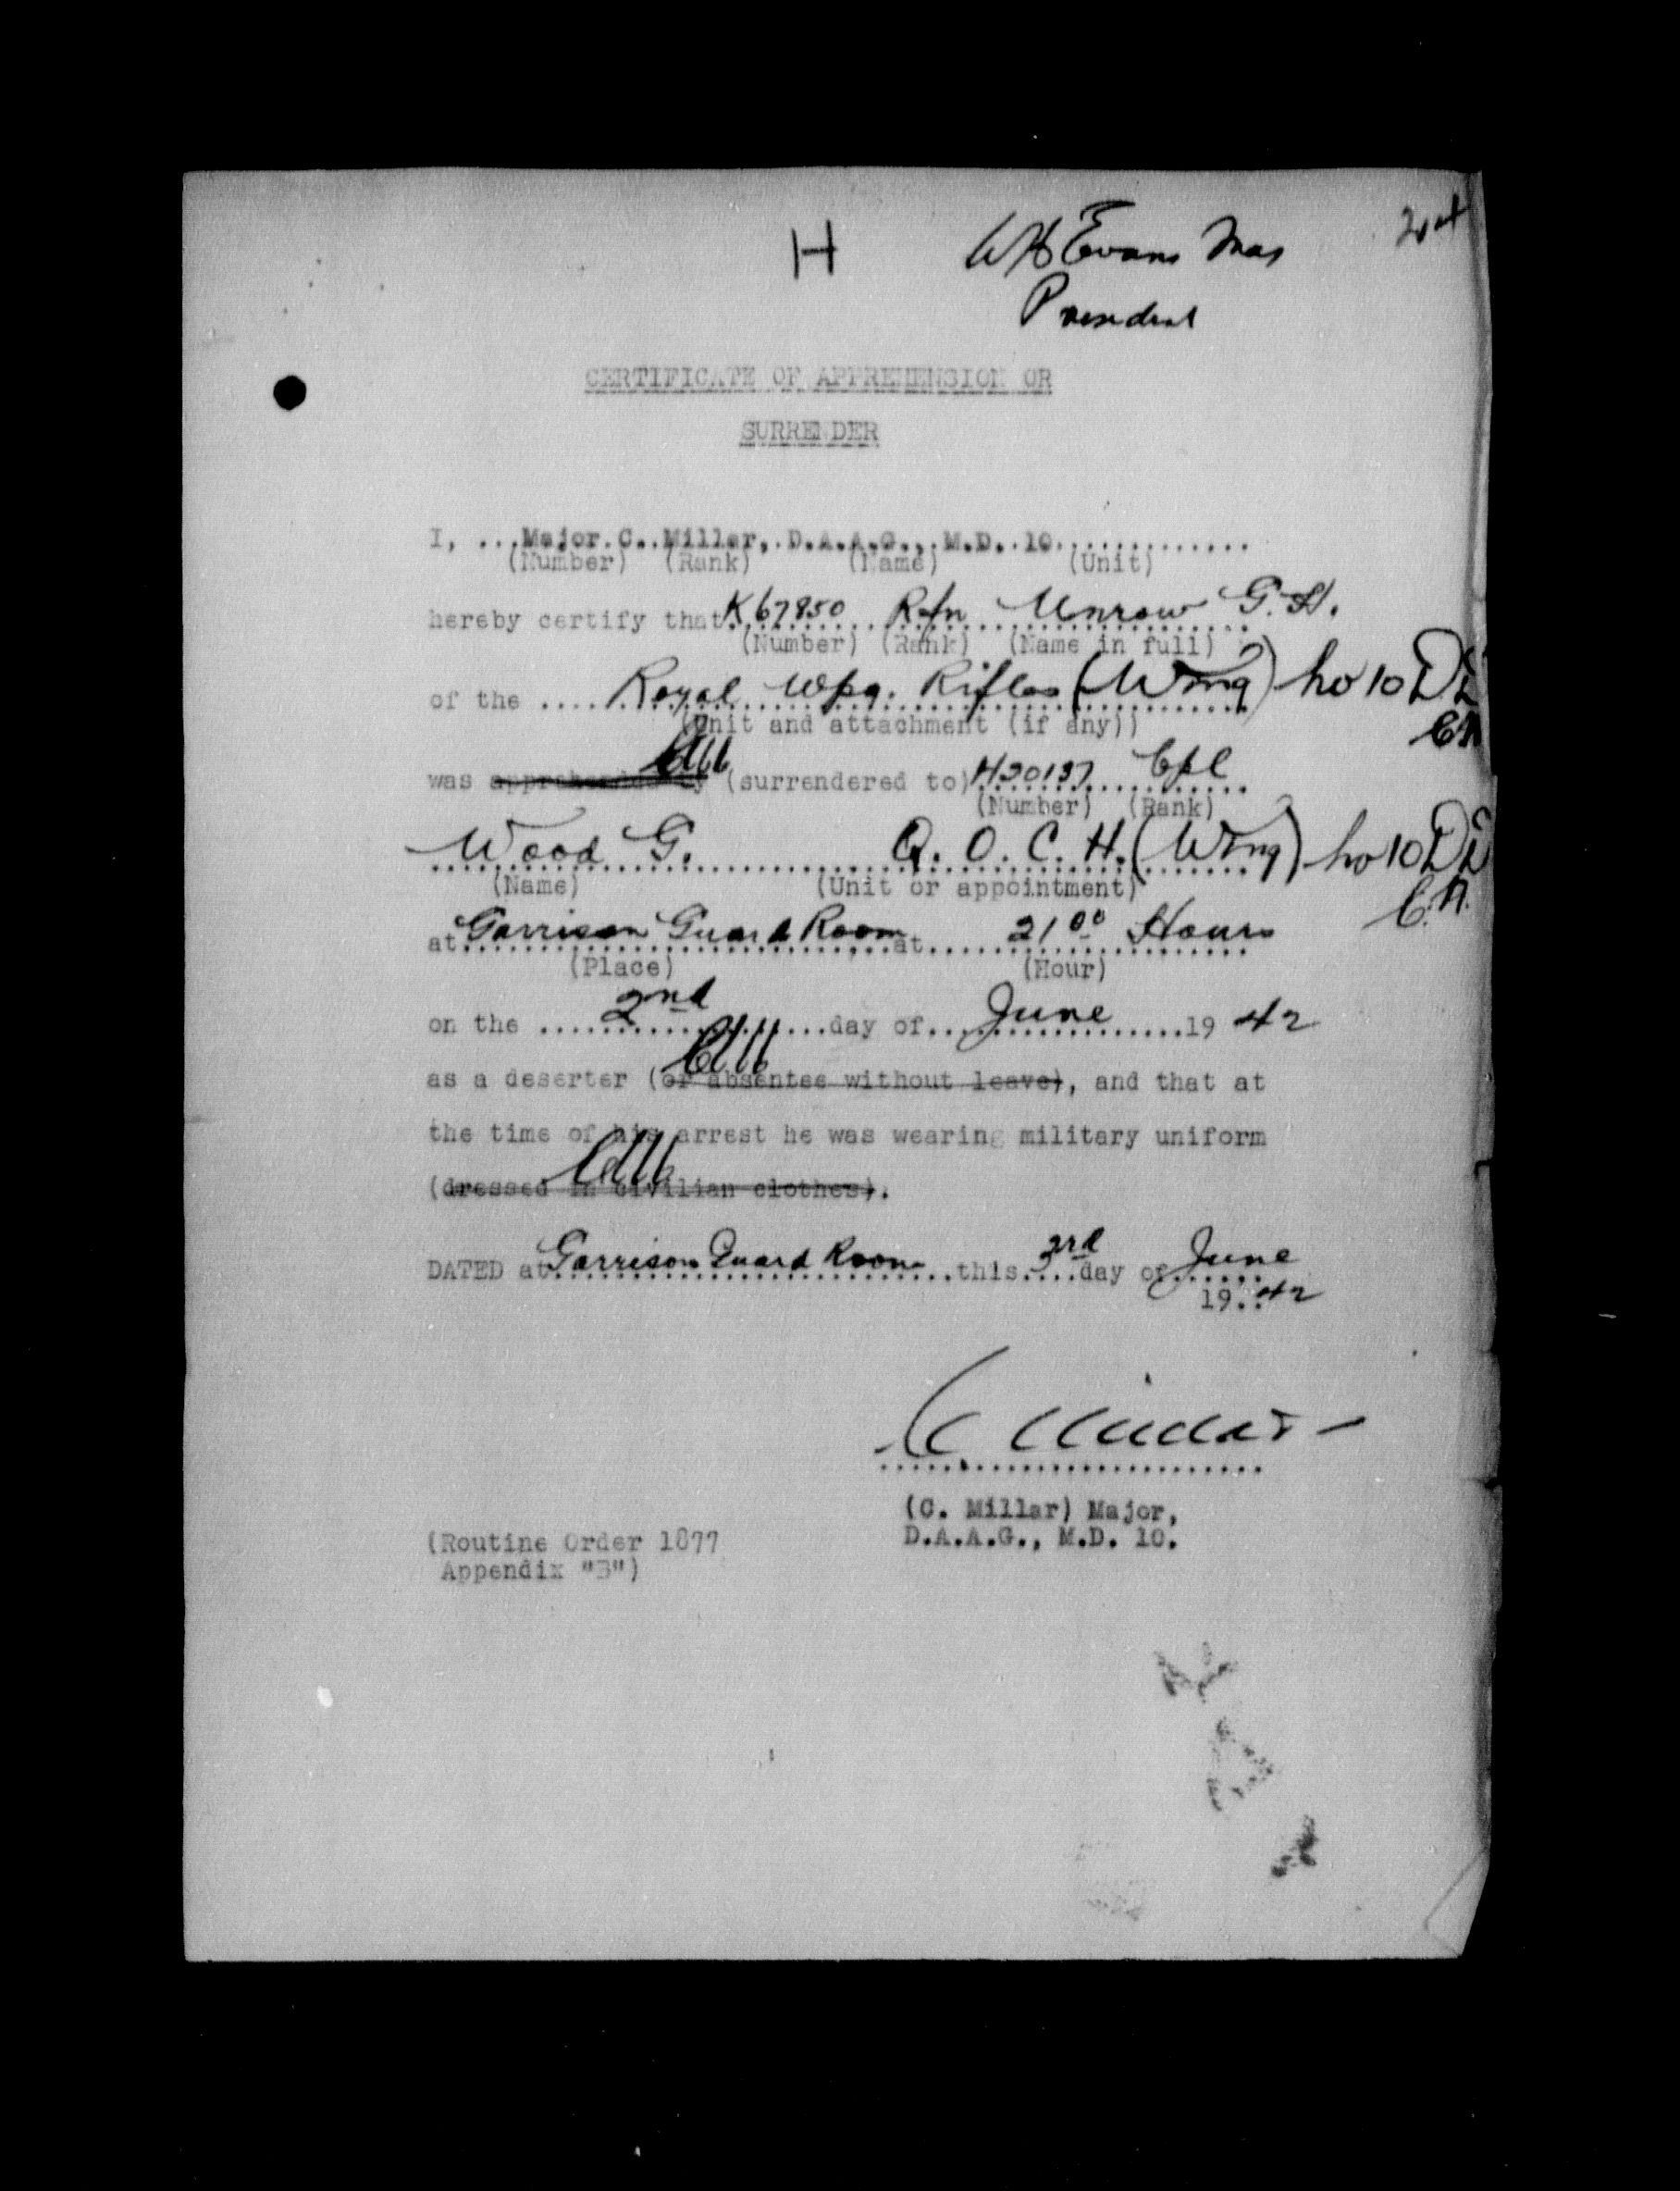 H
WH Evans Maj
President
CERTIFICATE OF APPREHENSION OR
SURRENDER
I, ...Major.C..Miller,.D.A.A.G.,.M.D..10..............
(Number) (Rank) (Name) (Unit)
hereby certify that K67850 Rfn Unrow G.H.
(Number) (Rank) (Name in full)
of the .... Royal Wpg. Rifles (Wing) No 10 DD
(Unit and attachment (if any))
was apprehended by (surrendered to) H20137 Cpl
(Number) (Rank)
Wood G. Q. O. C. H. (Wing) No 10 DD
(Name) (Unit or appointment)
C.M.
at Garrison Guard Room at 21 00 Hours
(Place) (Hour)
on the 2nd day of June 19 42
as a deserter (or absentee without leave), and that at
the time of his arrest he was wearing military uniform
(dressed in civilian clothes).
DATED at Garrison Guard Room this 3rd day of June
19 42
(C. Millar) Major,
D.A.A.G., M.D. 10.
(Routine Order 1877
Appendix "B")